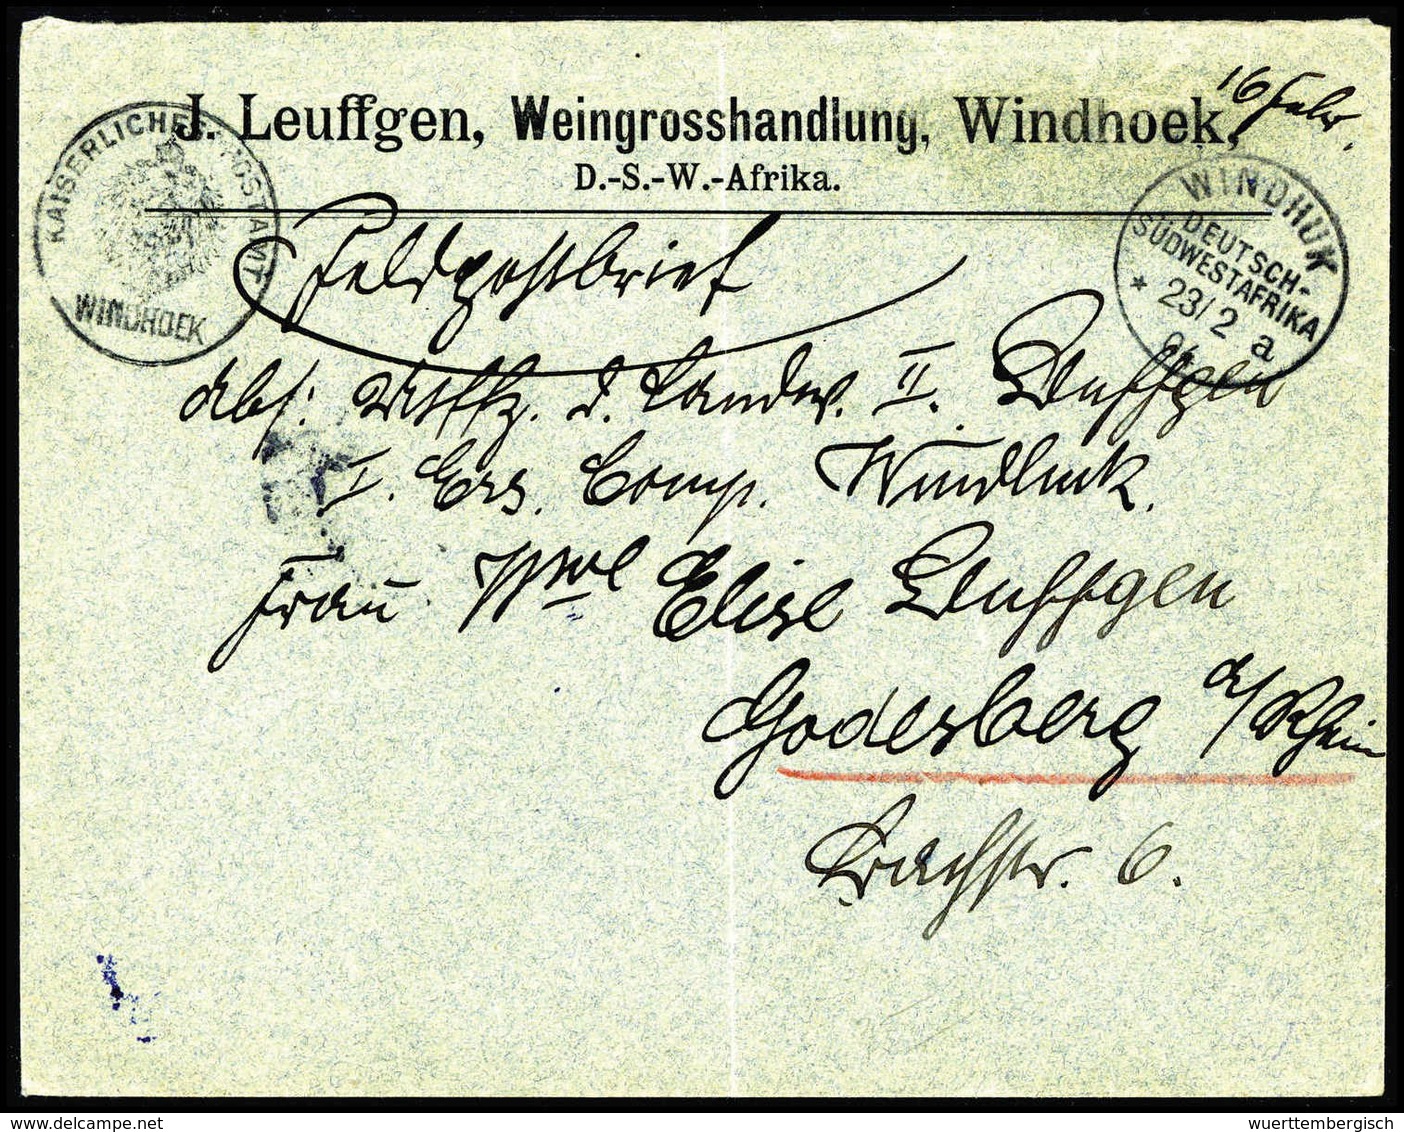 16 Febr.
J. Leuffgen, Weingrosshandlung, Windhoek,
D.-S.-W.-Afrika.
KAISERLICHES POSTAMT
WINDHOEK
WINDHUK
DEUTSCH-
SÜDWESTAFRIKA
* 23/2 a
Feldpostbrief
Abs: d. Landw. II. Leuffgen
I. Ers. Comp. Windhuk.
Frau Elise Leuffgen
Godesberg a/Rhein
Bachstr. 6.
wuerttembergisch